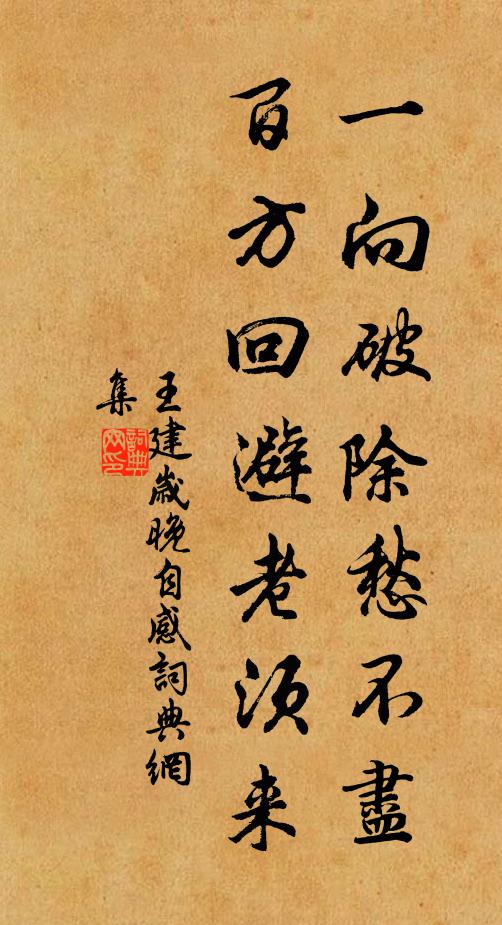 一向破除愁不盡
百方回避老須来
王建歲晚自感詞典網
集
詞典
网印